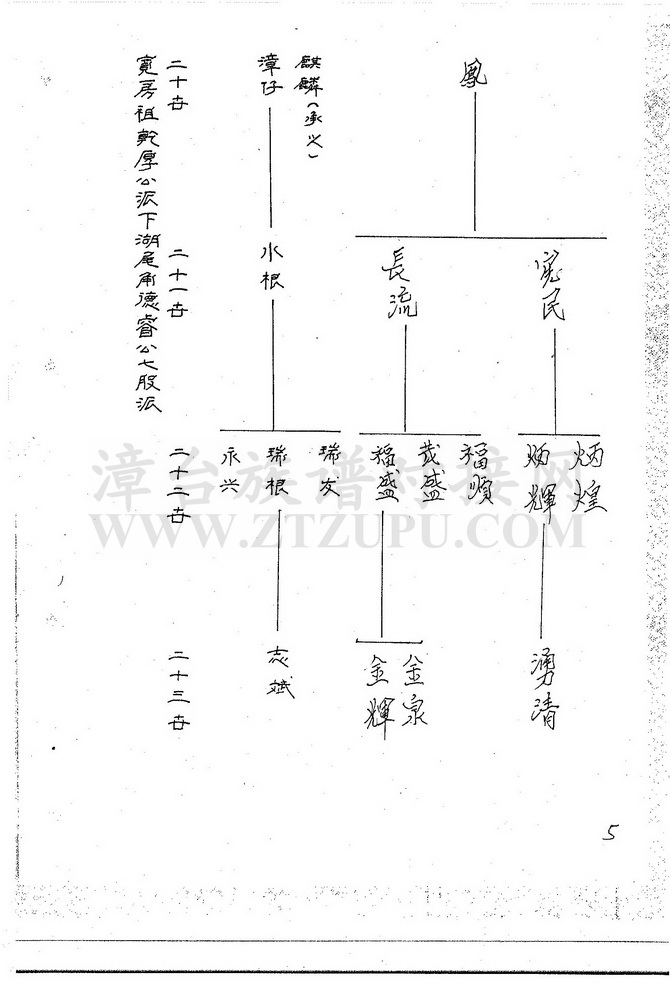 鳳
麒麟(承义)
漳仔
二十世
寬房祖乾厚公派下湖尾角德睿公七股派
憲民
長流
水根
二十一世
炳煌
炳輝
福順
茂盛
福盛
瑞发
瑞根
永兴
二十二世
湧清
金泉
金輝
志斌
二十三世
5
漳台族谱对接网
WWW.ZTZUPU.COM